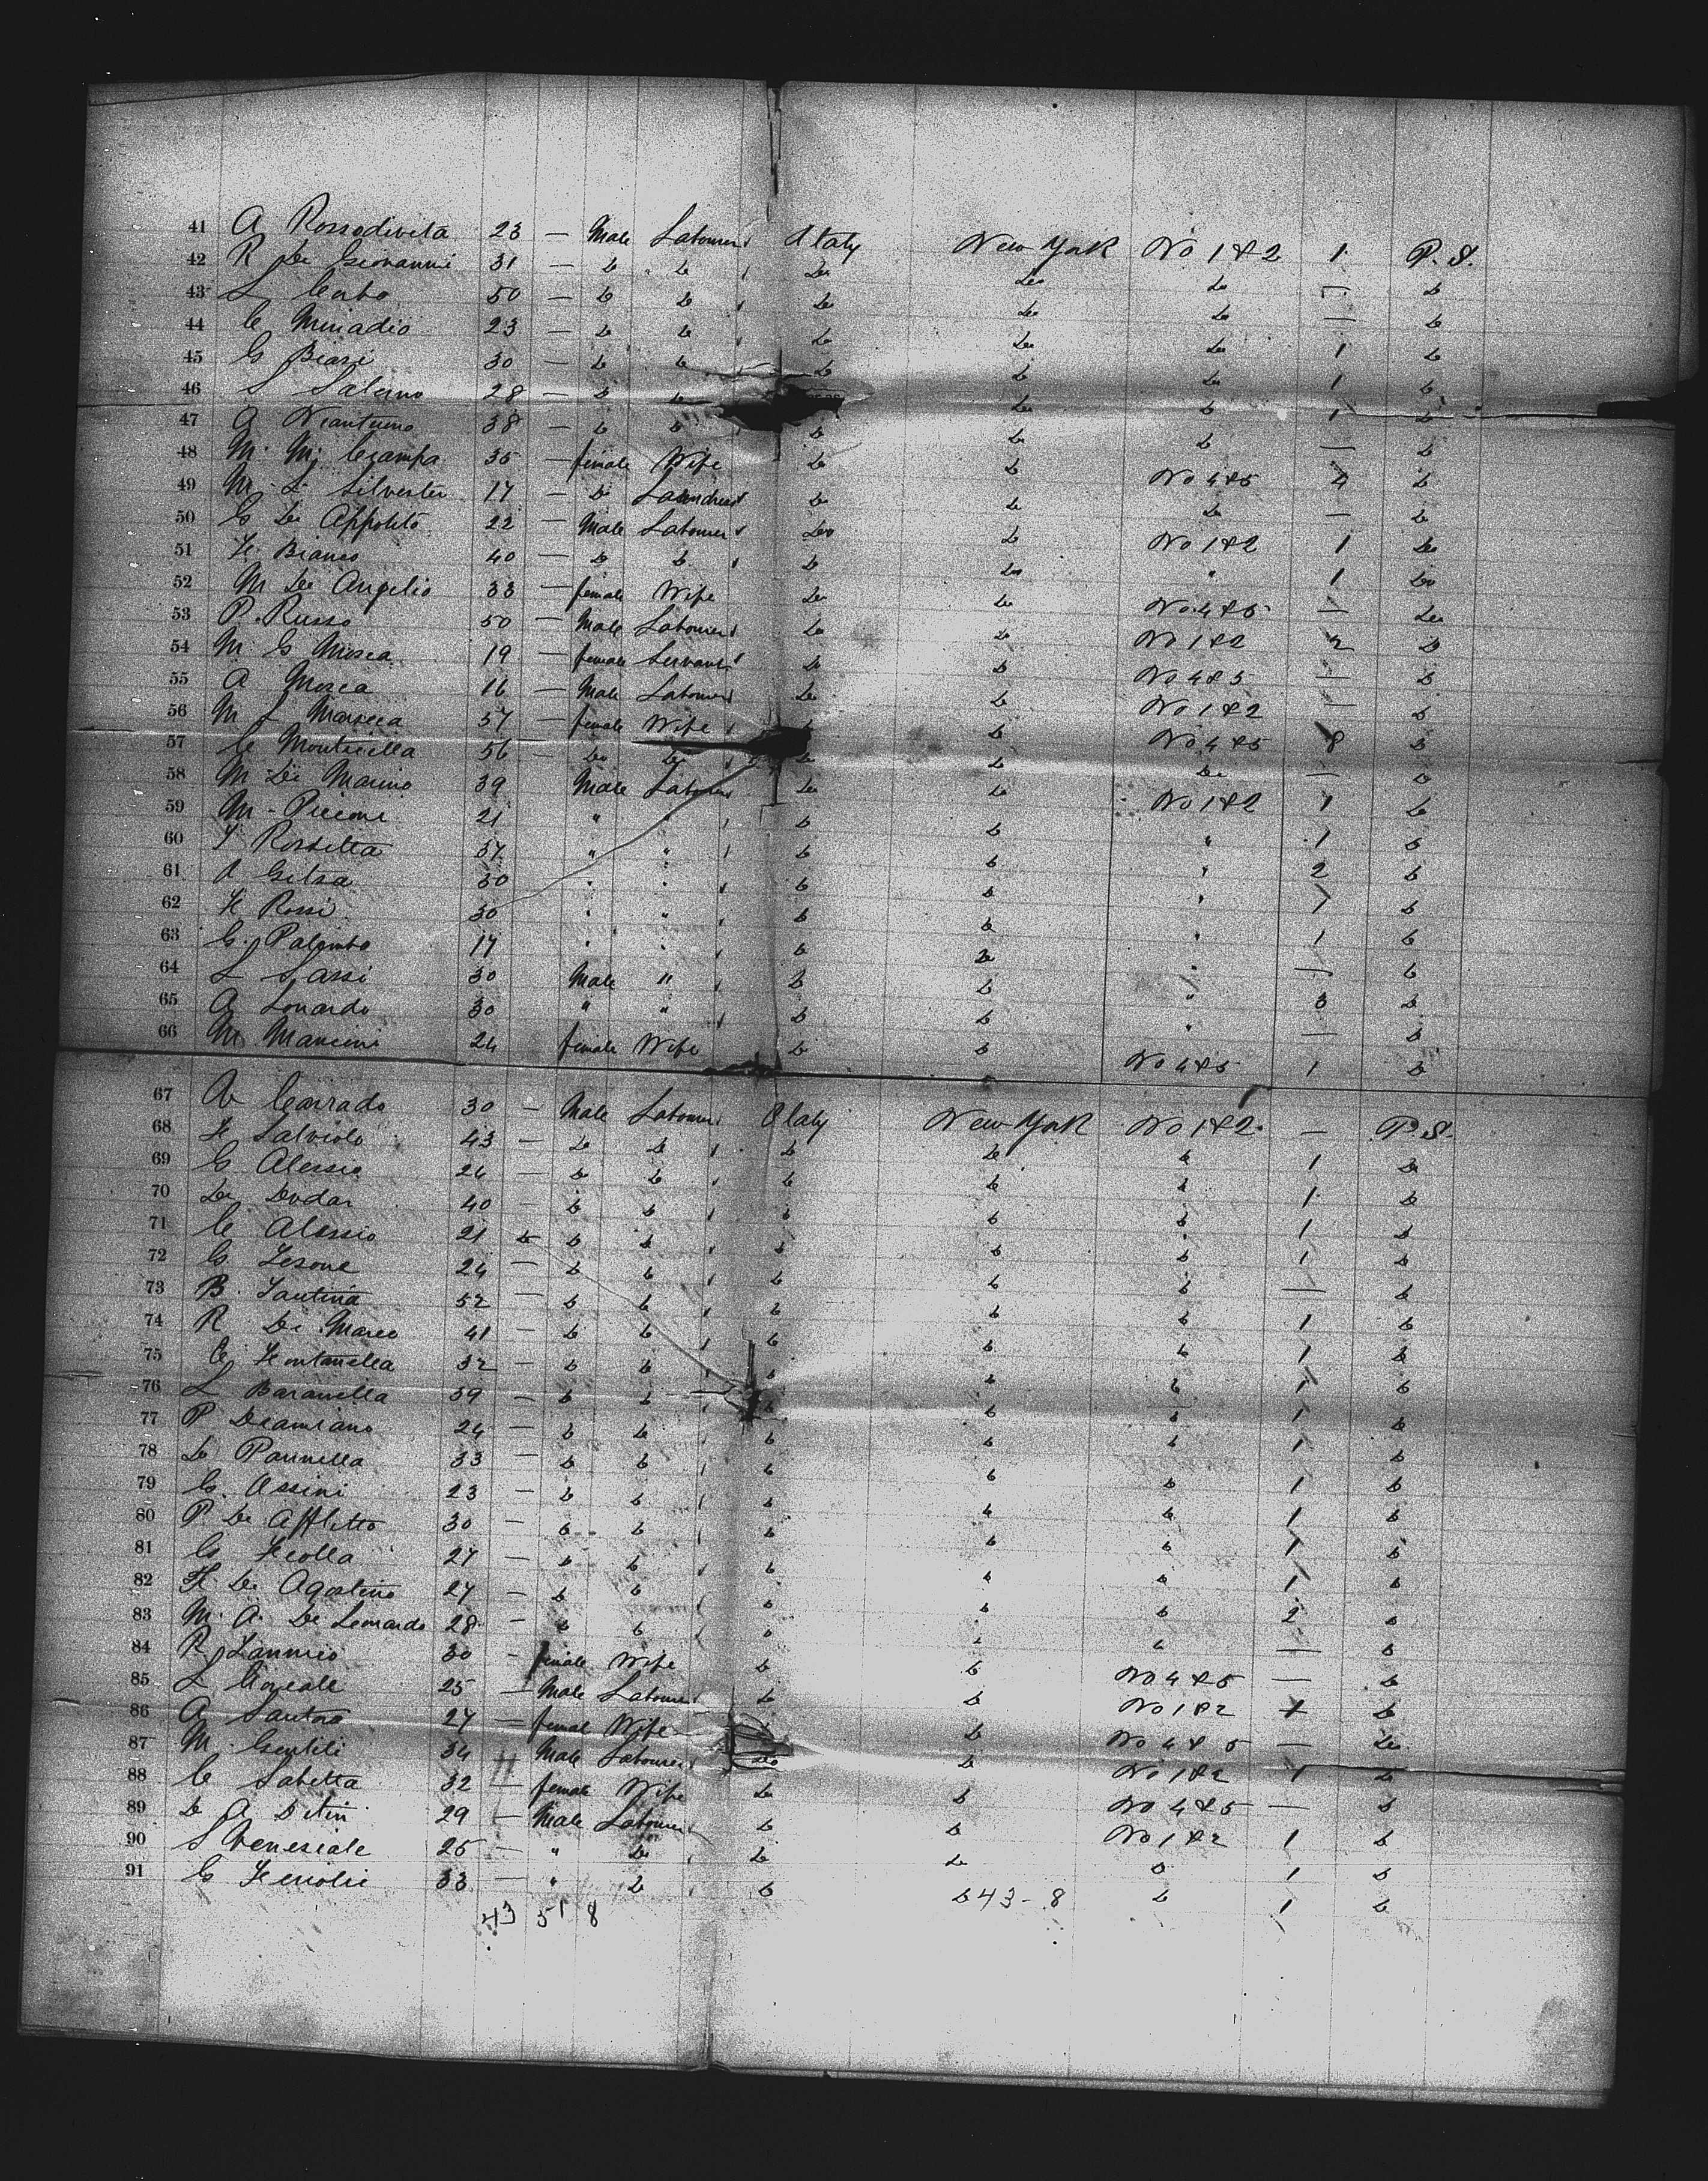 41 A Rossodivita 23 — Male Labourer Italy New York No 1 & 2 1 P.S.
42 R De Giovanni 31 — Do Do Do Do Do — Do
43 L Cerbo 50 — Do Do Do Do Do — Do
44 C Miniadio 23 — Do Do Do Do Do 1 Do
45 G Biasi 30 — Do Do Do Do Do 1 Do
46 S Salerno 28 — Do Do Do Do 1 Do
47 A 38 — Do Do Do Do Do — Do
48 M. M. Ciampa 35 — female Wife Do Do No 4 & 5 4 Do
49 M. L. Silvester 17 — Do Laundress Do Do Do — Do
50 G De Appolito 22 — Male Labourer Do Do No 1 & 2 1 Do
51 F. Bianco 40 — Do Do Do Do " 1 Do
52 M De Angelio 33 — female Wife Do Do No. 4 & 5 — Do
53 P. Russo 50 — Male Labourer Do Do No 1 & 2 2 Do
54 M. G Mosca 19 — female Servant Do Do No 4 & 5 — Do
55 A Mosca 16 — Male Labourer Do Do No 1 & 2 — Do
56 M L 57 — female Wife Do Do No 4 & 5 8 Do
57 C Monticella 56 — Do Do Do Do Do — Do
58 M De Marino 39 Male Labourer Do Do No 1 & 2 1 Do
59 M - Piccone 21 " " Do Do " 1 Do
60 Rossetta 57 " " Do Do " 2 Do
61 30 " " Do Do " 1 Do
62 F Rossi 30 " " Do Do " 1 Do
63 G. Palombo 17 " " Do Do " — Do
64 L Sassi 30 Male " Do Do " 3 Do
65 A Lonardo 30 " " Do Do " — Do
66 M Mancini 24 female Wife Do Do No 4 & 5 1 Do
67 A Corrado 30 — Male Labourer Italy New York No 1 & 2 — P.S.
68 F Salviolo 43 — Do Do Do Do Do 1 Do
69 G Alessio 24 — Do Do Do Do Do 1 Do
70 De Dodar 40 — Do Do Do Do Do 1 Do
71 C Alessio 21 — Do Do Do Do Do 1 Do
72 G Lesone 24 — Do Do Do Do Do — Do
73 B. Santina 52 — Do Do Do Do Do 1 Do
74 R De Marco 41 — Do Do Do Do Do 1 Do
75 C Fontanella 32 — Do Do Do Do Do 1 Do
76 L Baranella 39 — Do Do Do Do Do 1 Do
77 P Deamiano 24 — Do Do Do Do Do 1 Do
78 D Pannella 33 — Do Do Do Do Do 1 Do
79 G. Assini 23 — Do Do Do Do Do 1 Do
80 P De Afflitto 30 — Do Do Do Do Do 1 Do
81 G Feolla 27 — Do Do Do Do Do 1 Do
82 F. De Agostino 27 — Do Do Do Do Do 2 Do
83 M. A. De Leonardo 28 — Do Do Do Do Do — Do
84 R Iannuco 30 — female Wife Do Do No 4 & 5 — Do
85 L 25 — Male Labourer Do Do No 1 & 2 1 Do
86 A Santoro 27 — female Wife Do Do No 4 & 5 — Do
87 M. Gentili 34 Male Labourer Do Do No 1 & 2 1 Do
88 C Sabetta 32 — female Wife Do Do No 4 & 5 — Do
89 D A 29 — Male Labourer Do Do No 1 & 2 1 Do
90 S Veneseale 25 — " Do Do Do Do 1 Do
91 G 33 — " Do Do Do 43 - 8 Do 1 Do
43 51 8